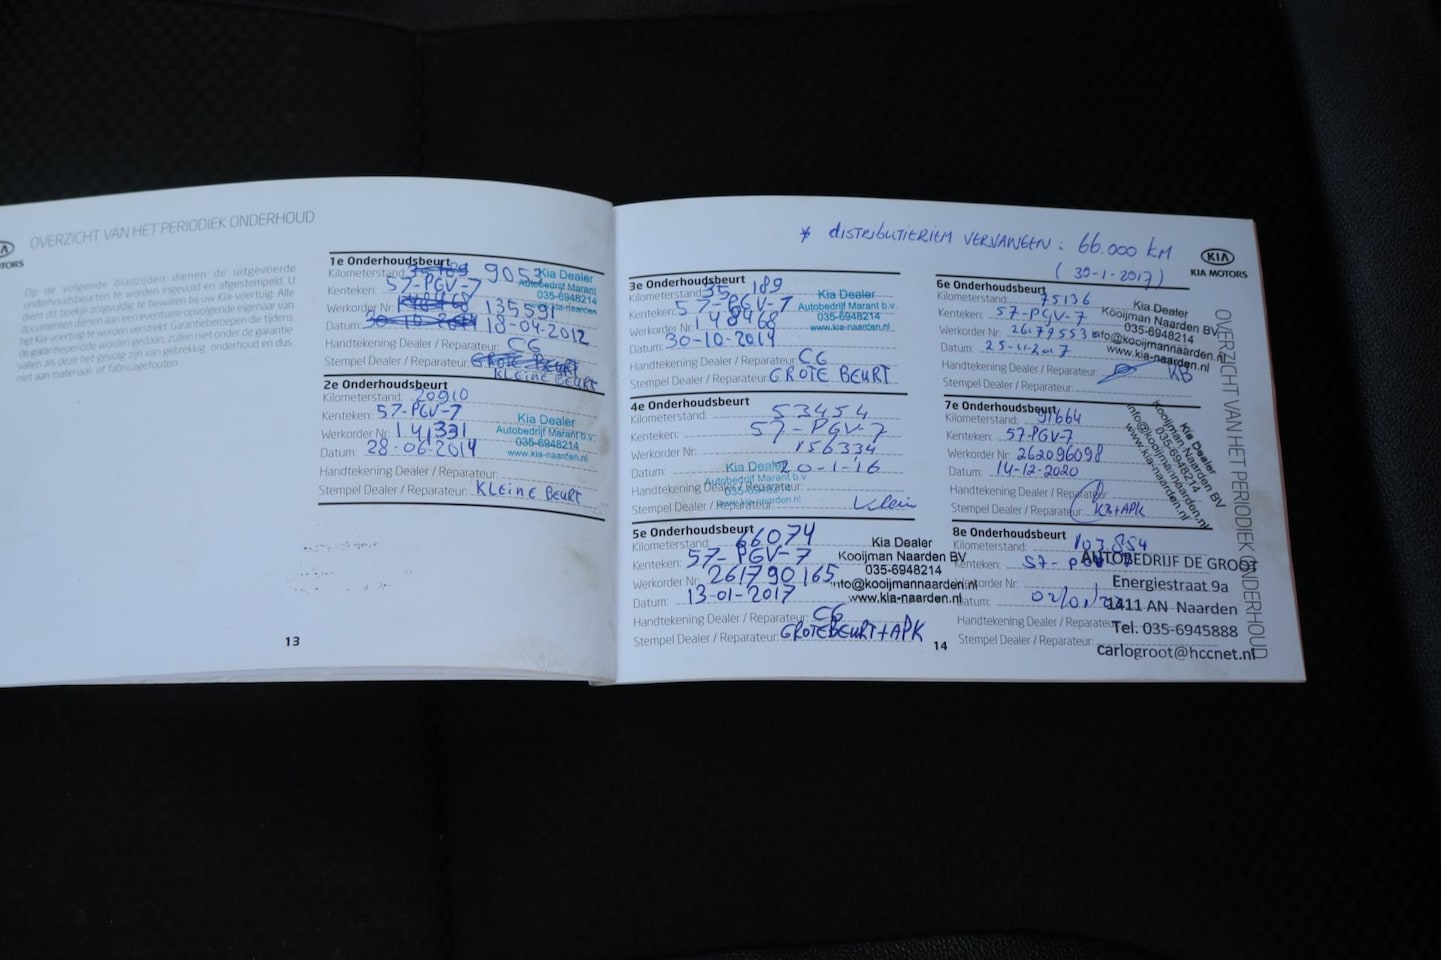 OVERZICHT VAN HET PERIODIEK ONDERHOUD
Op de volgende bladzijden dienen de uitgevoerde
onderhoudsbeurten te worden ingevuld en afgestempeld. U
dient dit boekje zorgvuldig te bewaren bij uw Kia-voertuig. Alle
documenten dienen aan een eventuele opvolgende eigenaar van
het Kia-voertuig te worden verstrekt. Garantieberoepen die tijdens
de garantieperiode worden gedaan, zullen niet onder de garantie
vallen als deze het gevolg zijn van gebrekkig onderhoud en dus
niet aan materiaal- of fabricagefouten.
1e Onderhoudsbeurt
Kilometerstand: 9053
Kenteken: 57-PGV-7
Werkorder Nr: 135591
Datum: 30-10-2014 18-04-2012
Handtekening Dealer / Reparateur: CG
Stempel Dealer / Reparateur: GROTE BEURT
KLEINE BEURT
Kia Dealer
Autobedrijf Marant b.v.
035-6948214
www.kia-naarden.nl
2e Onderhoudsbeurt
Kilometerstand: 20910
Kenteken: 57-PGV-7
Werkorder Nr: 141331
Datum: 28-06-2014
Handtekening Dealer / Reparateur:
Stempel Dealer / Reparateur: KLEINE BEURT
Kia Dealer
Autobedrijf Marant b.v.
035-6948214
www.kia-naarden.nl
13
* DISTRIBUTIERIEM VERVANGEN: 66.000 KM
(30-1-2017)
KIA
KIA MOTORS
3e Onderhoudsbeurt
Kilometerstand: 35 189
Kenteken: 57-PGV-7
Werkorder Nr: 148468
Datum: 30-10-2014
Handtekening Dealer / Reparateur: CG
Stempel Dealer / Reparateur: GROTE BEURT
Kia Dealer
Autobedrijf Marant b.v.
035-6948214
www.kia-naarden.nl
4e Onderhoudsbeurt
Kilometerstand: 53454
Kenteken: 57-PGV-7
Werkorder Nr: 156334
Datum: 20-1-16
Handtekening Dealer / Reparateur:
Stempel Dealer / Reparateur: Klein
Kia Dealer
Autobedrijf Marant b.v.
035-6948214
www.kia-naarden.nl
5e Onderhoudsbeurt
Kilometerstand: 66074
Kenteken: 57-PGV-7
Werkorder Nr: 261790165
Datum: 13-01-2017
Handtekening Dealer / Reparateur: CG
Stempel Dealer / Reparateur: GROTE BEURT + APK
Kia Dealer
Kooijman Naarden BV
035-6948214
info@kooijmannaarden.nl
www.kia-naarden.nl
6e Onderhoudsbeurt
Kilometerstand: 75136
Kenteken: 57-PGV-7
Werkorder Nr: 26179553
Datum: 25-11-2017
Handtekening Dealer / Reparateur: KB
Stempel Dealer / Reparateur:
Kia Dealer
Kooijman Naarden BV
035-6948214
info@kooijmannaarden.nl
www.kia-naarden.nl
7e Onderhoudsbeurt
Kilometerstand: 91664
Kenteken: 57-PGV-7
Werkorder Nr: 262096098
Datum: 14-12-2020
Handtekening Dealer / Reparateur:
Stempel Dealer / Reparateur: KB+APK
Kia Dealer
Kooijman Naarden BV
035-6948214
info@kooijmannaarden.nl
www.kia-naarden.nl
8e Onderhoudsbeurt
Kilometerstand: 103.854
Kenteken: 57-PGV-7
Werkorder Nr:
Datum:
Handtekening Dealer / Reparateur:
Stempel Dealer / Reparateur:
AUTOBEDRIJF DE GROOT
Energiestraat 9a
1411 AN Naarden
Tel. 035-6945888
carlogroot@hccnet.nl
14
OVERZICHT VAN HET PERIODIEK ONDERHOUD